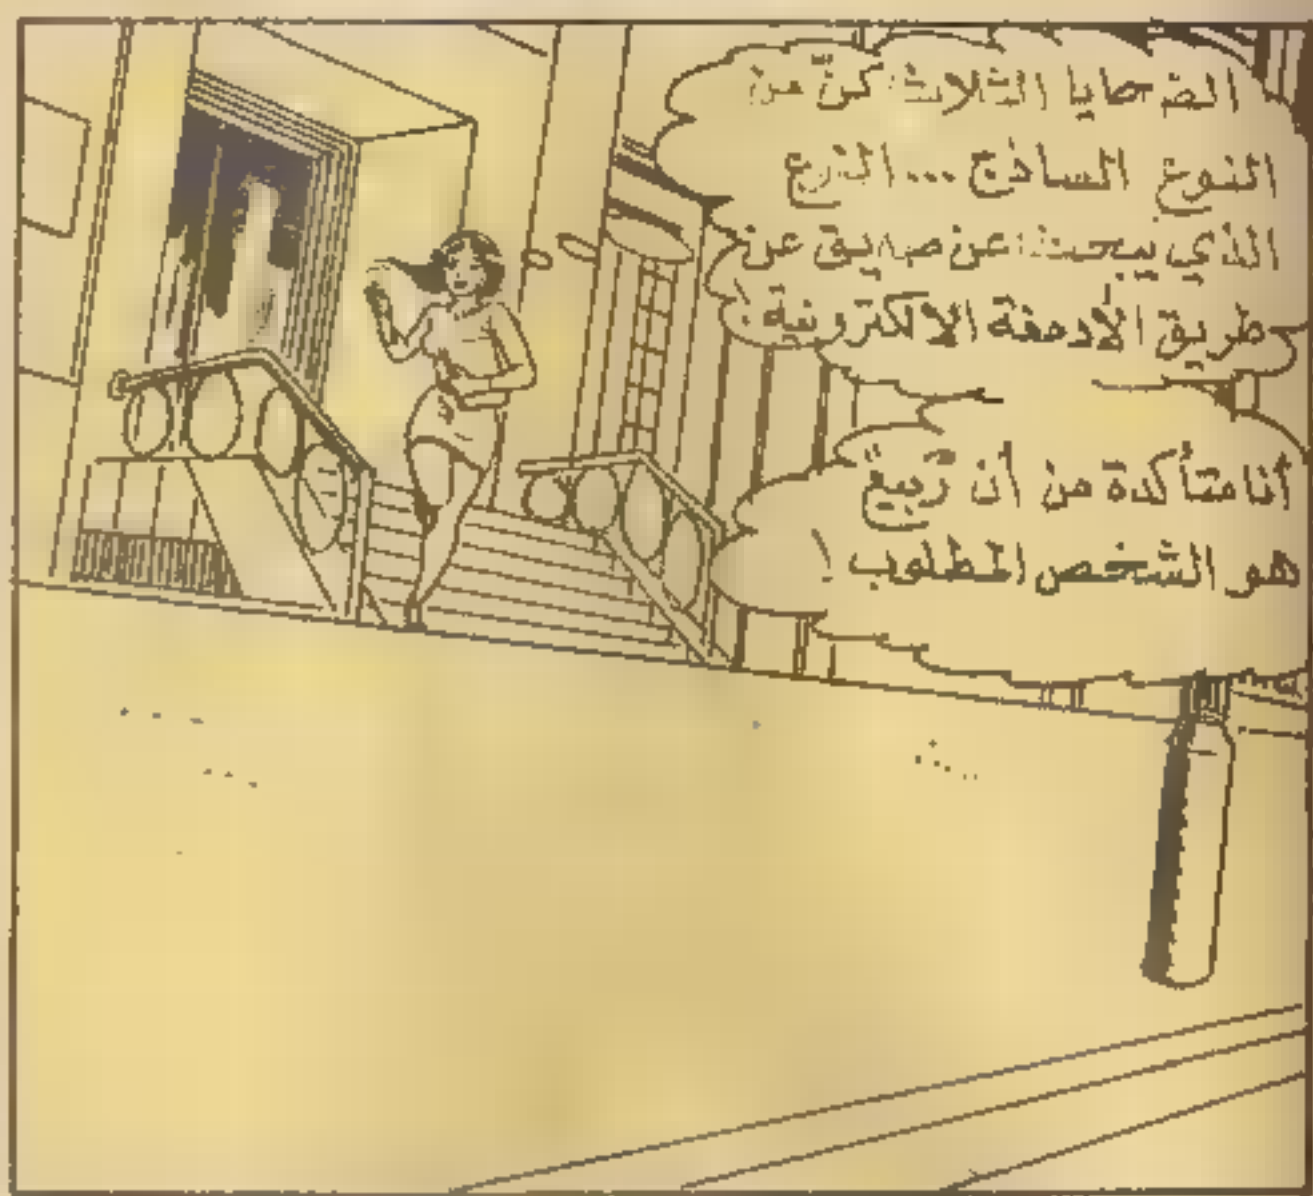 الضحايا الثلاث كنّ من
النوع الساذج... النوع
الذي يبحث عن صديق عن
طريق الأدمغة الالكترونية!
أنا متأكدة من أن ربيع
هو الشخص المطلوب!